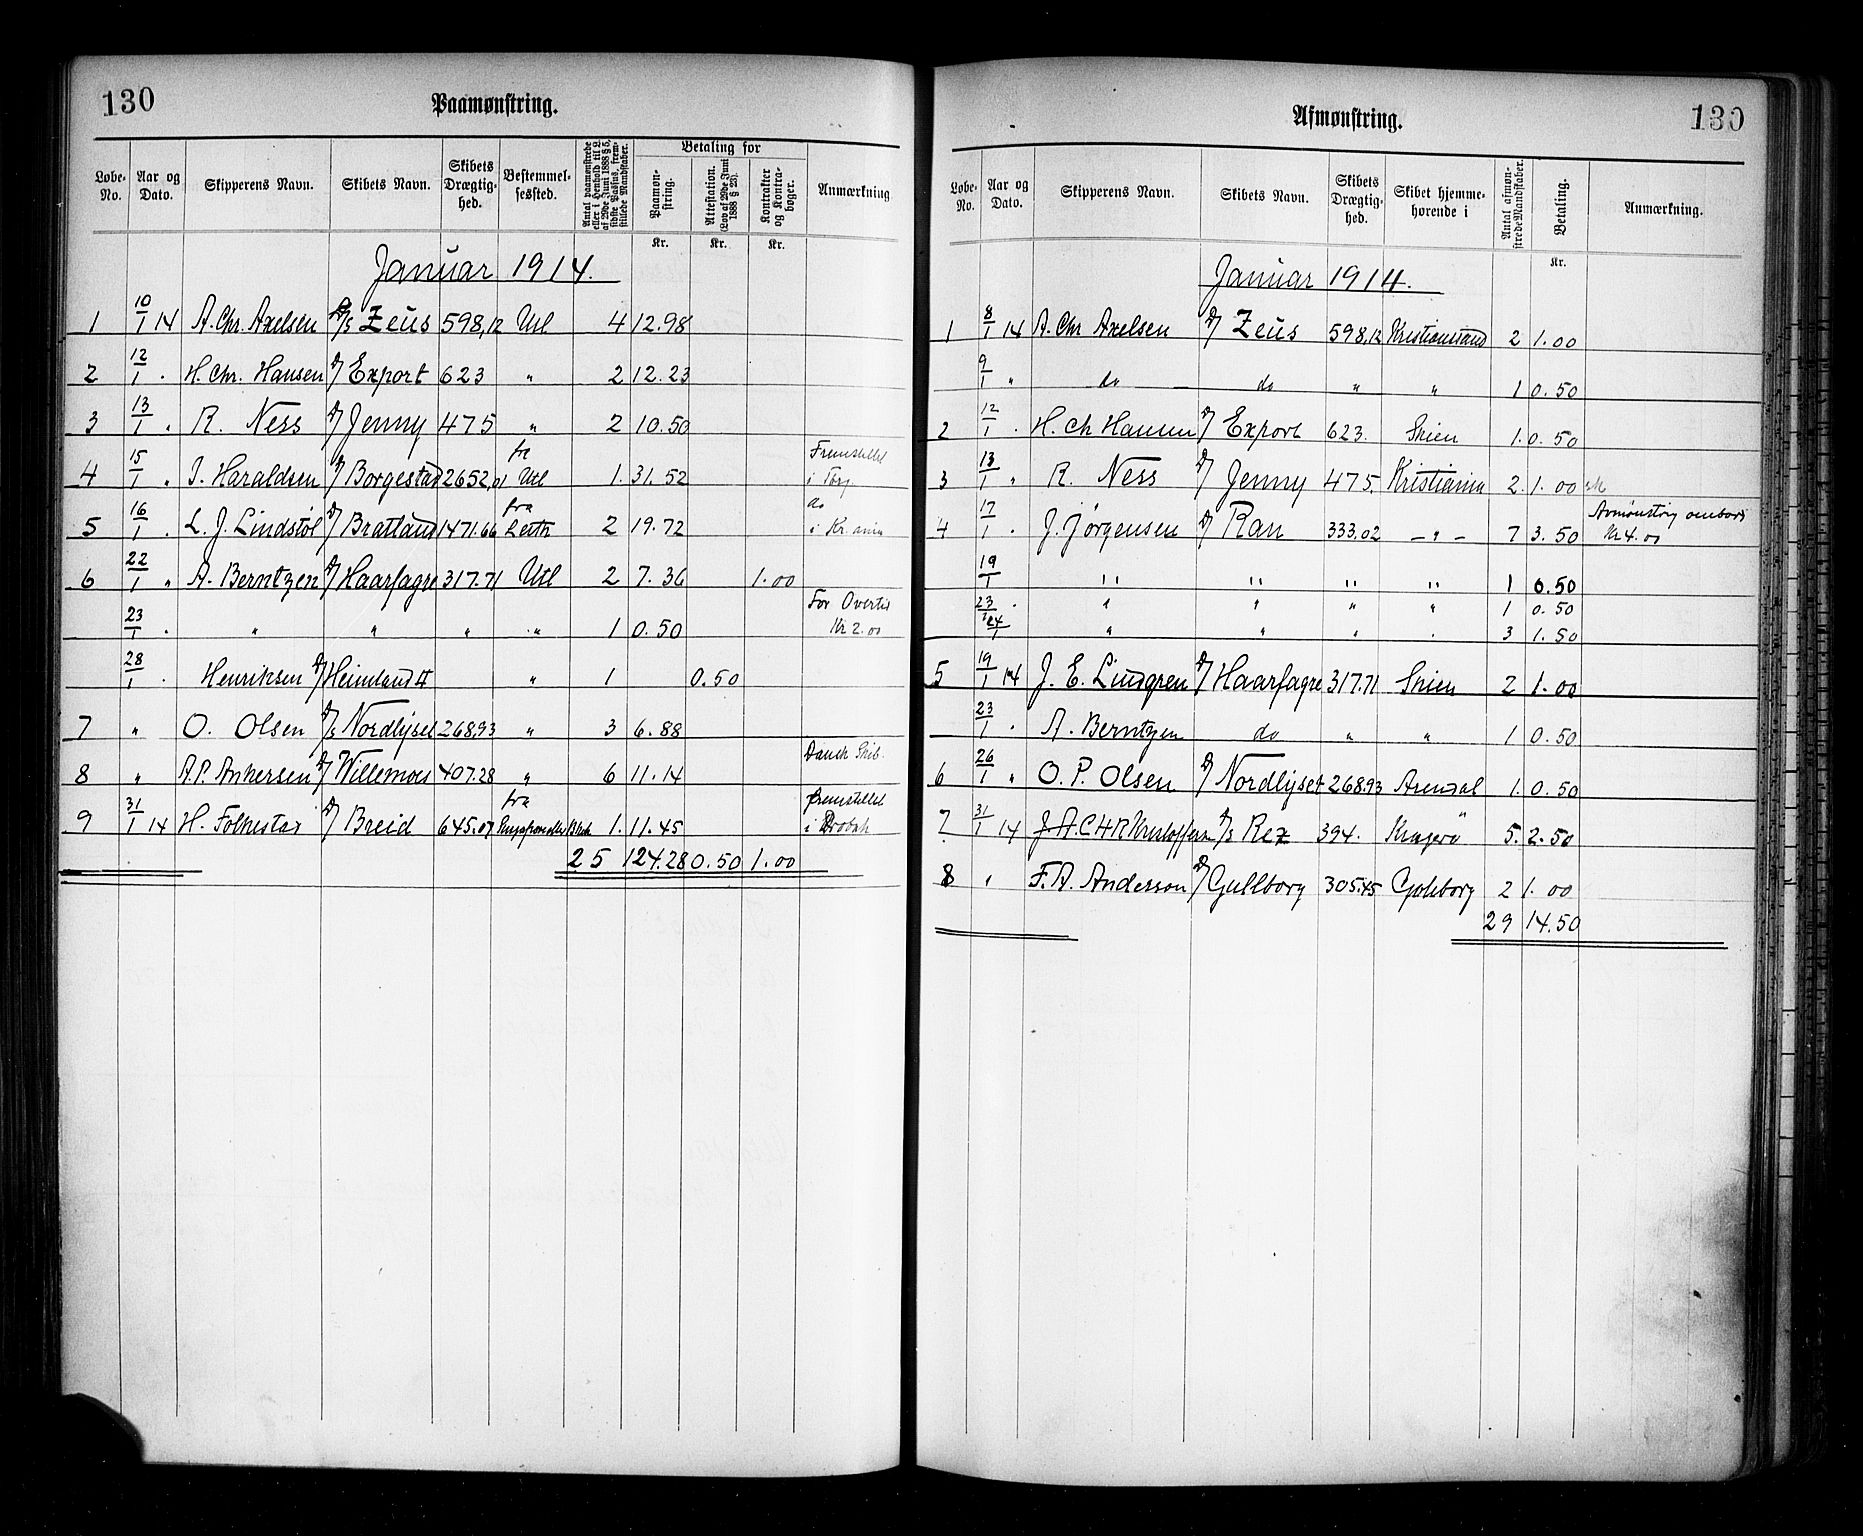 130
Paamønstring.
Løbe-No. | Aar og Dato. | Skipperens Navn. | Skibets Navn. | Skibets Drægtig-hed. | Bestemmel-sessted. | Antal paamønstrede eller i Henhold til L. af 29de Juni 1888 § 5, sidste Passus, frem-stillede Mandskaber. | Betaling for | Paamøn-string. | Attestation. (Lov af 29de Juni 1888 § 23). | Kontrakter og Kontra-bøger. | Anmærkning
Kr. | Kr. | Kr.
Januar 1914.
1 | 10/1 14 | A. Chr. Axelsen | D/S Zeus | 598,12 | Utl | 4 | 12.98
2 | 12/1 . | H. Chr. Hansen | D/ Export | 623 | " | 2 | 12.23
3 | 13/1 . | R. Ness | D/ Jenny | 475 | " | 2 | 10.50
4 | 15/1 " | J. Haraldsen | D/ Borgestad | 2652,01 | fra Utl | 1. | 31.52 | Fremstillet i
5 | 16/1 . | L. J. Lindstøl | D/ Bratland | 1471.66 | fra Leith | 2 | 19.72 | do i Kr.ania
6 | 22/1 " | A. Berntzen | D/ Haarfagre | 317.71 | Utl | 2 | 7.36 | 1.00
23/1 . | " | " | " | " | 1 | 0.50 | For Overtid Kr 2.00
28/1 . | Henriksen | D/ Heimland II | " | 1 | 0.50
7 | " | O. Olsen | D/S Nordlyset | 268,93 | " | 3 | 6.88
8 | " | A. P. Ankersen | D/ Willemoes | 407.28 | " | 6 | 11.14 | Dansk Skib.
9 | 31/1 14 | H. Folkestad | D/ Breid | 645.07 | fra | 1. | 11.45 | fremstillet i Drøbak
25 | 124.28 | 0.50 | 1.00
130
Afmønstring.
Løbe-No. | Aar og Dato. | Skipperens Navn. | Skibets Navn. | Skibets Drægtig-hed. | Skibet hjemme-hørende i | Antal afmøn-strede Mandskaber. | Betaling. | Anmærkning.
Kr.
Januar 1914.
1 | 8/1 14 | A. Chr Axelsen | D/ Zeus | 598,12 | Kristianssand | 2 | 1.00
9/1 " | do | do | " | " | 1 | 0.50
2 | 12/1 . | H. Ch Hansen | D/ Export | 623. | Skien | 1. | 0.50
3 | 13/1 " | R. Ness | D/ Jenny | 475. | Kristiania | 2. | 1.00
4 | 17/1 . | J. Jørgensen | D/ Ran | 333.02 | - " - | 7 | 3.50 | Avmønstrig ombord Kr 4.00
19/1 | " | " | " | " | 1 | 0.50
23/1 . | " | " | " | " | 1 | 0.50
24/1 | " | " | " | . | 3 | 1.50
5 | 19/1 14 | J. E. Lindgren | D/ Haarfagre | 317.71 | Skien | 2 | 1.00
23/1 . | A. Berntzen | do | " | " | 1 | 0.50
6 | 26/1 " | O. P. Olsen | D/ Nordlyset | 268.93 | Arendal | 1. | 0.50
7 | 31/1 14 | J. A. C H R Kristoffersen | D/S Rex | 394. | Kragerö | 5. | 2.50
8 | " | F. A. Anderson | D/ Gullborg | 305.45 | Goteborg | 2 | 1.00
29 | 14.50